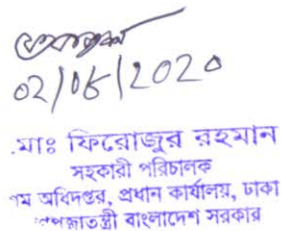 02/08/2020
মাঃ ফিরোজুর রহমান
সহকারী পরিচালক
ম অধিদপ্তর, প্রধান কার্যালয়, ঢাকা
প্রজাতন্ত্রী বাংলাদেশ সরকার